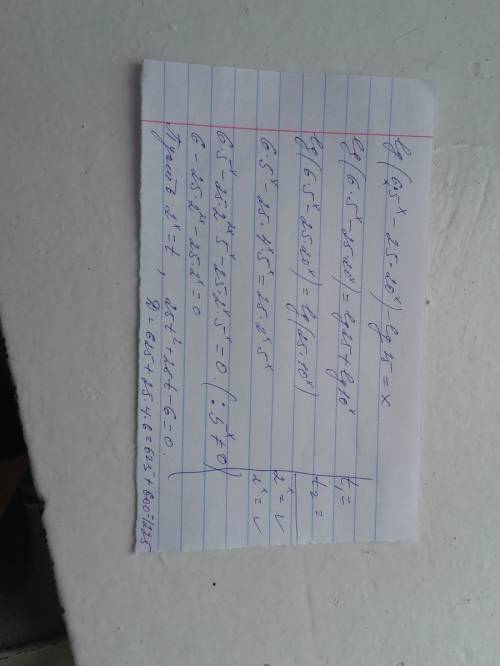 lg(6·5^x - 25·20^x) - lg25 = x
lg(6·5^x - 25·20^x) = lg25 + lg10^x
lg(6·5^x - 25·20^x) = lg(25·10^x)
6·5^x - 25·4^x·5^x = 25·2^x·5^x
6·5^x - 25·2^2x·5^x - 25·2^x·5^x = 0 (:5^x ≠ 0)
6 - 25·2^2x - 25·2^x = 0
Пусть 2^x = t, 25t² + 25t - 6 = 0
D = 625 + 25·4·6 = 625 + 600 = 1225
t₁ =
t₂ =
2^x = v
2^x = v